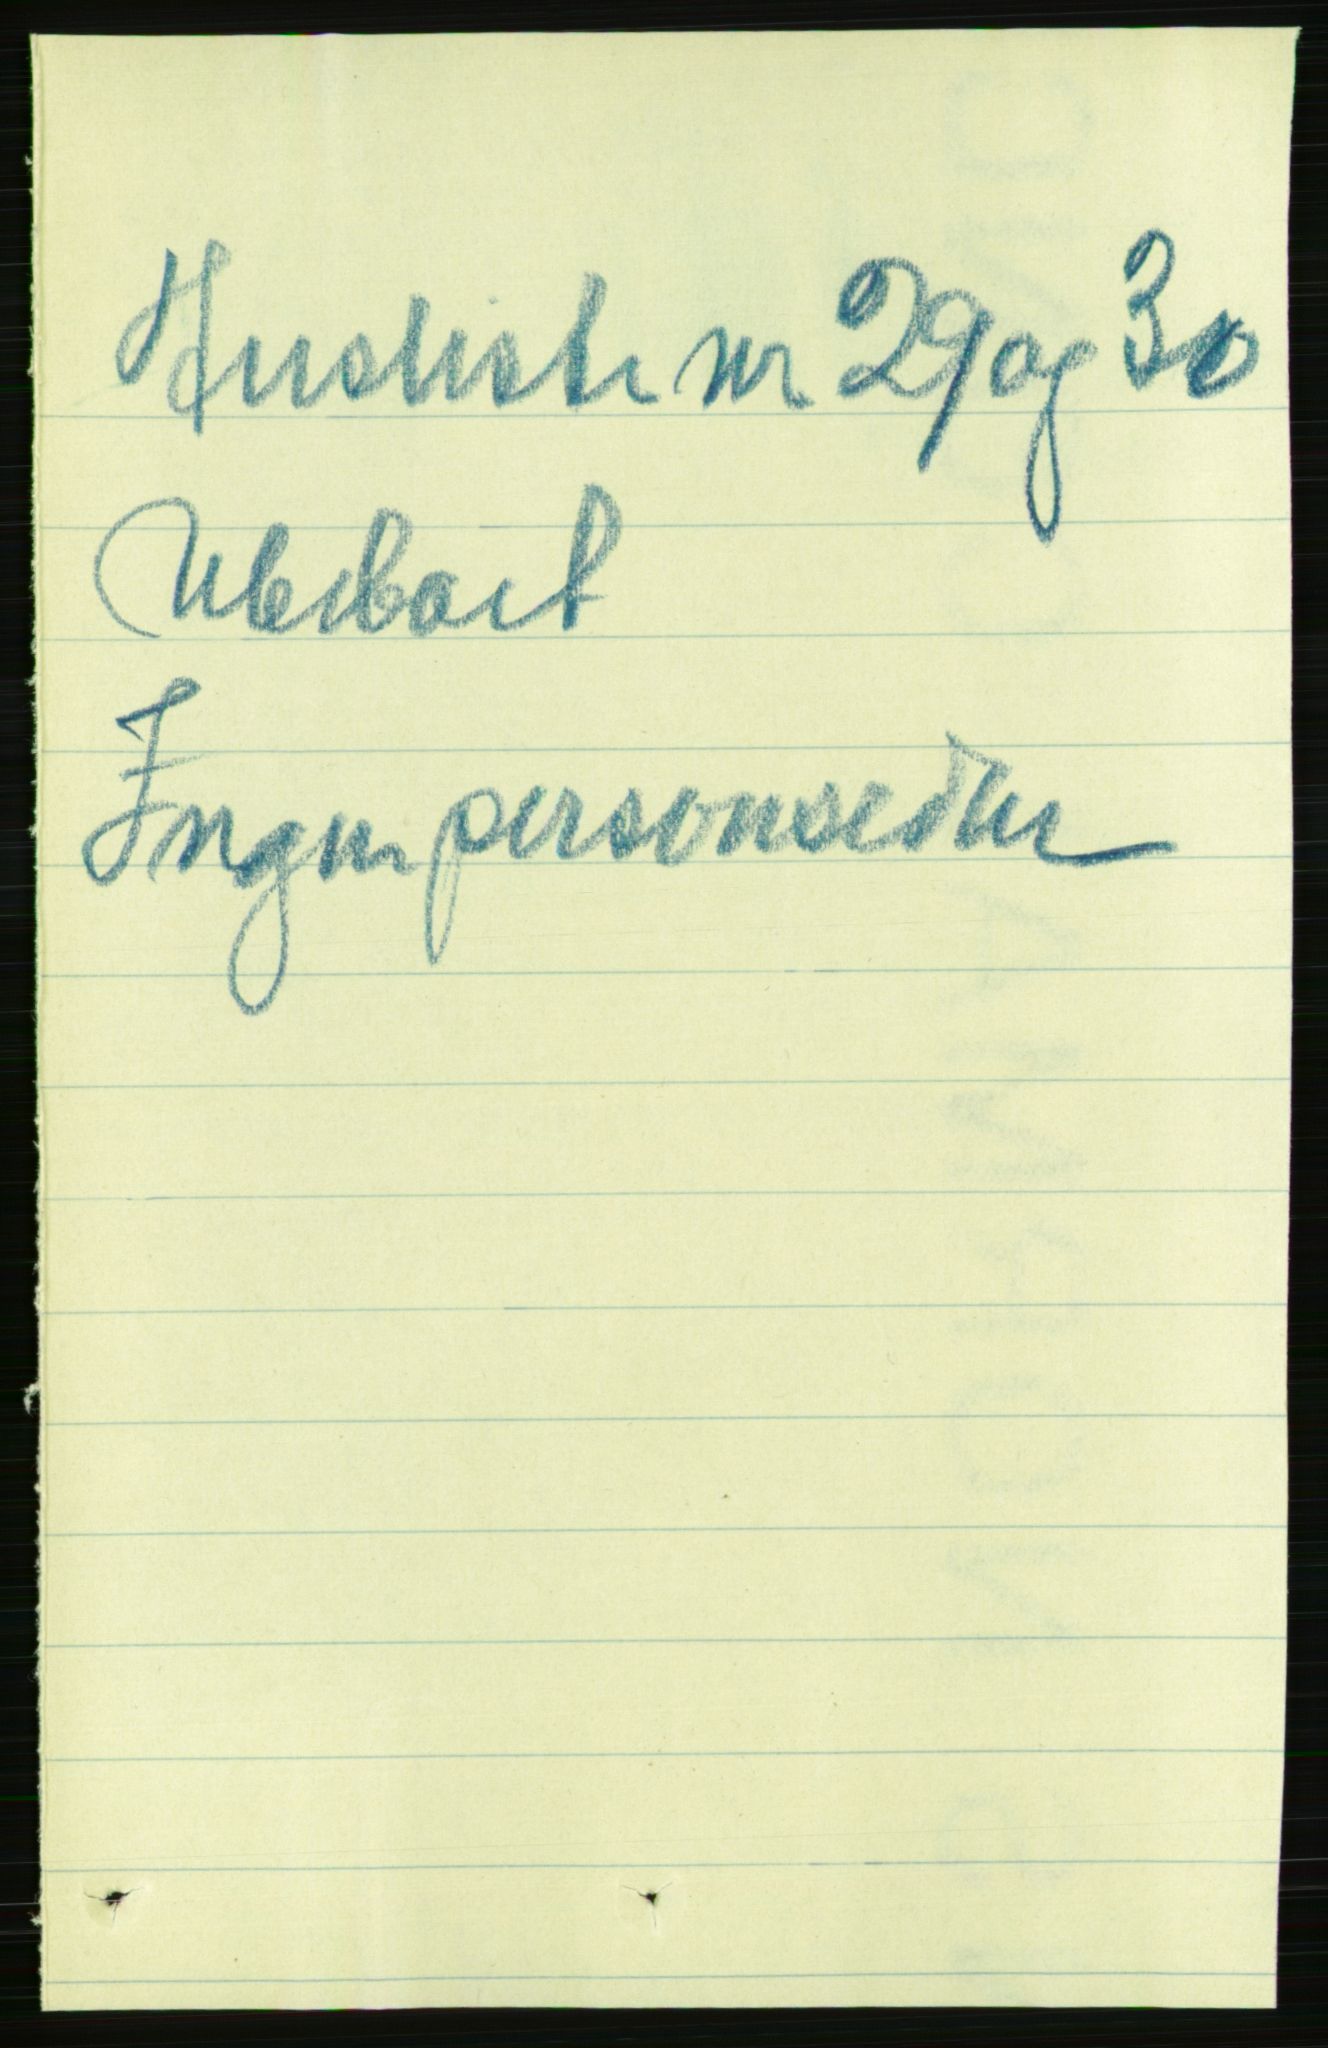 Husliste nr 29 og 30
Ubeboet
Ingen personsedler